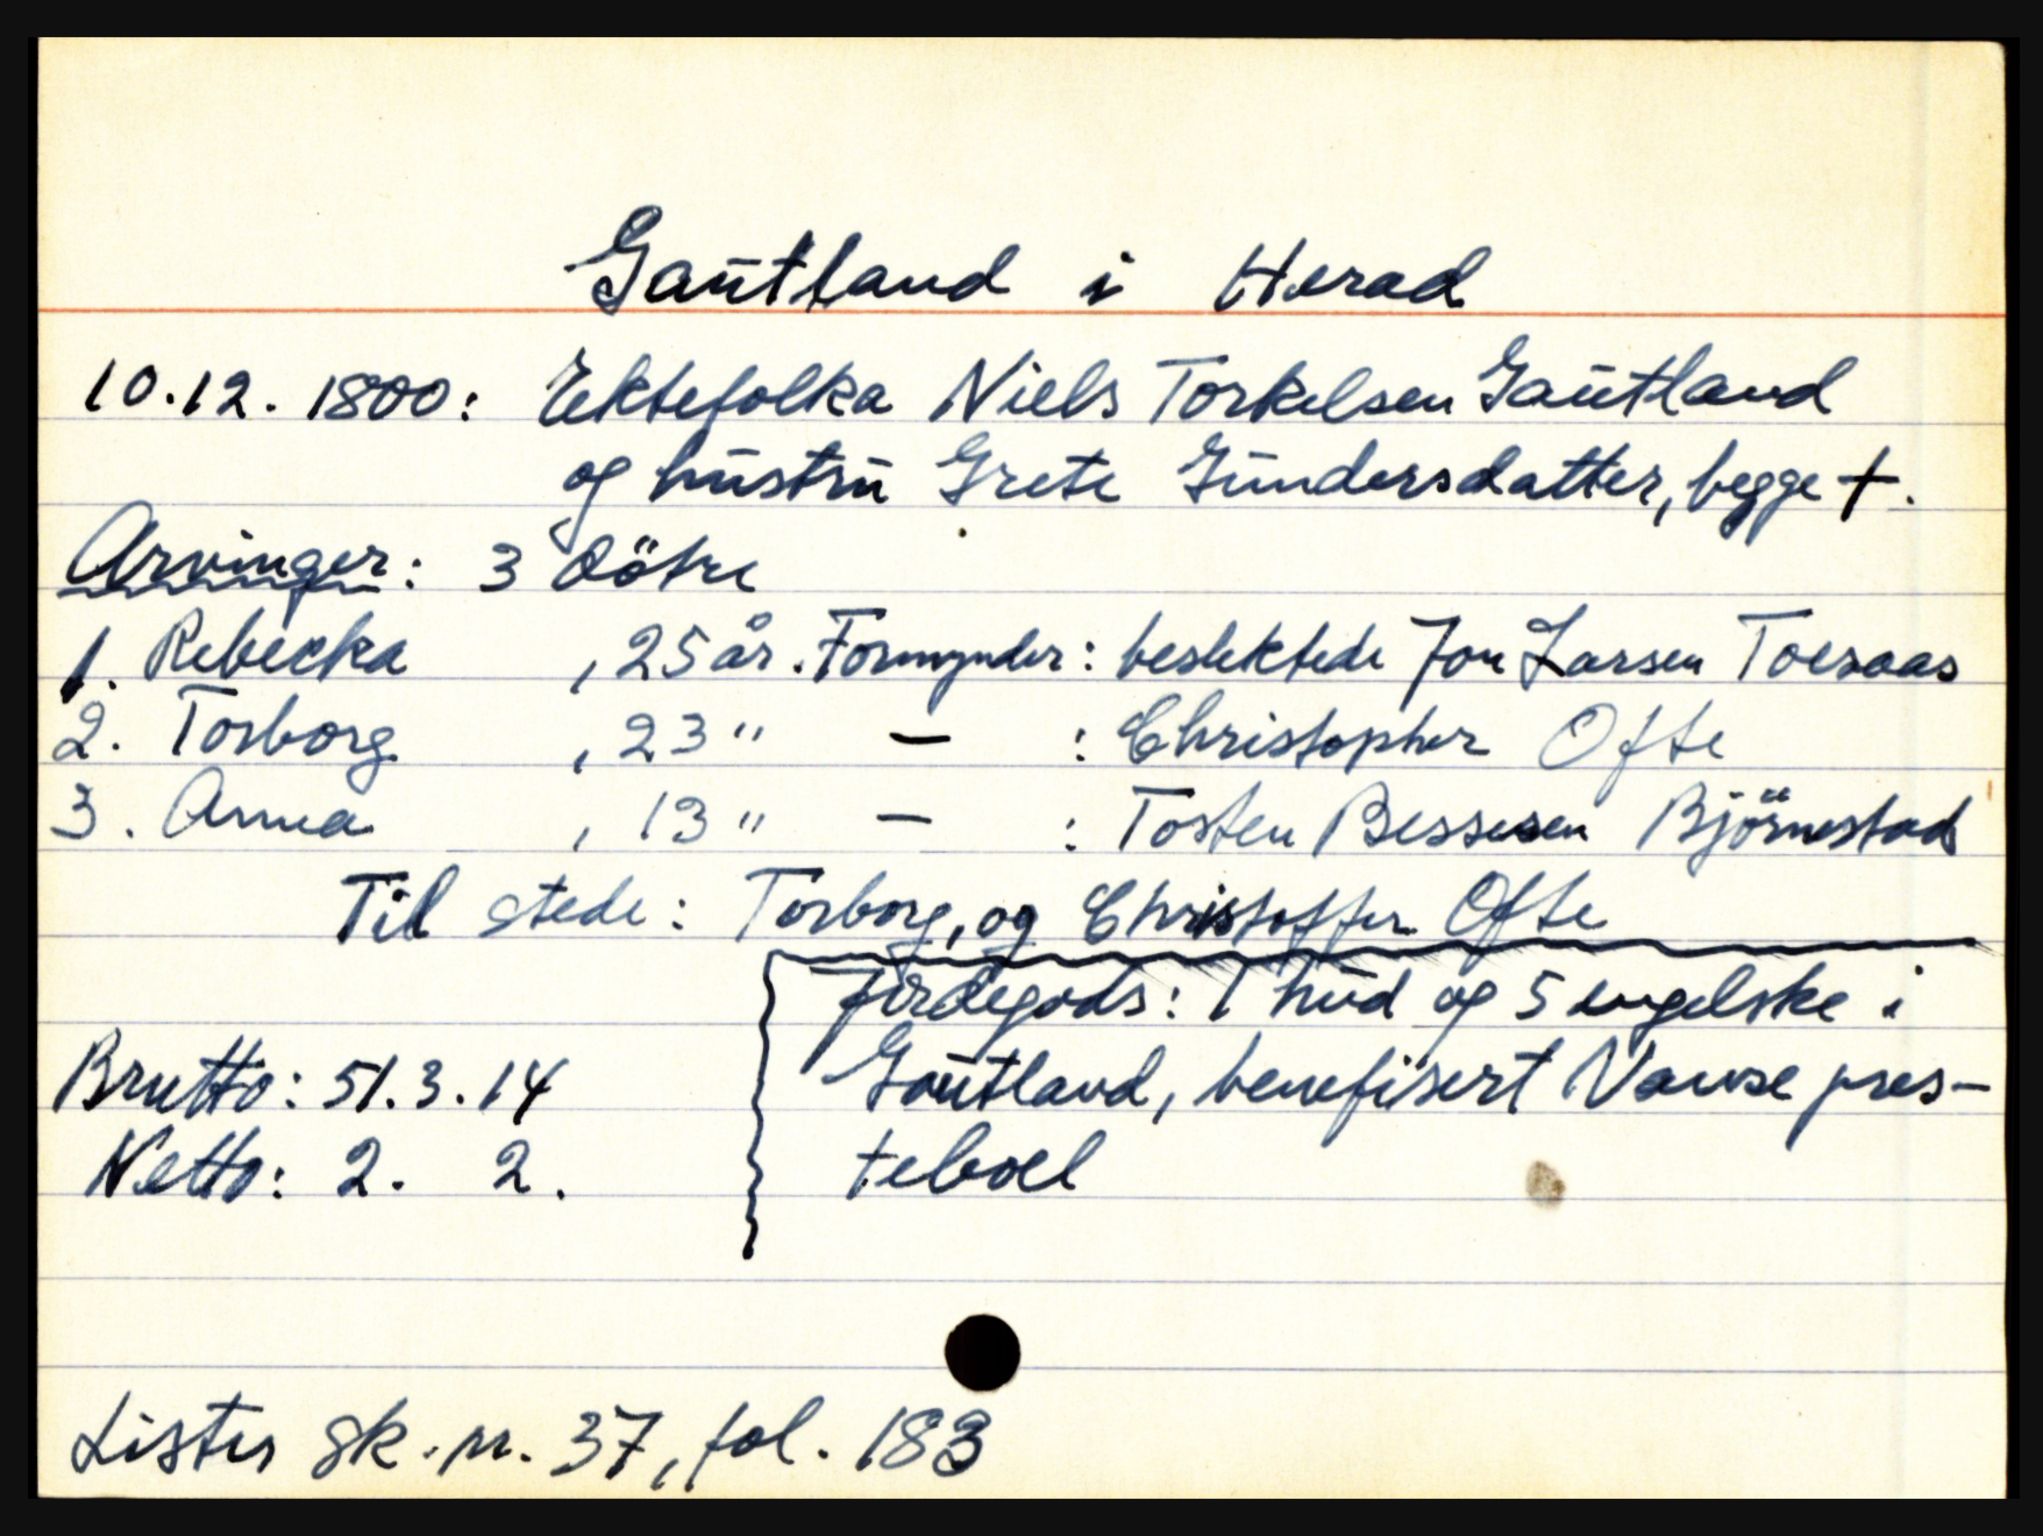 Gautland i Herad
10.12.1800: Ektefolka Niels Torkelsen Gautland
og hustru Grete Gundersdatter, begge †.
Arvinger: 3 døtre
1. Rebecka , 25 år. Formynder: beslektede Jon Larsen Toesaas
2. Torborg , 23 " — : Christopher Ofte
3. Anna , 13 " — : Tosten Bessesen Björnestad
Til stede: Torborg, og Christoffer Ofte
Jordegods: 1 hud og 5 engelske i
Gautland, benefisert Vanse pres-
teboel
Brutto: 51.3.14
Netto: 2. 2.
Lister sk. nr. 37, fol. 183